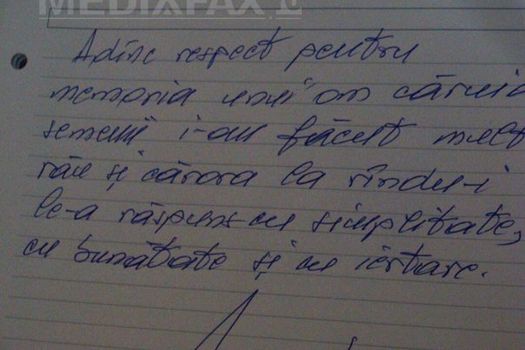 MEDIAFAX
Adînc respect pentru
memoria unui om căruia
semenii i-au făcut mult
rău și cărora la rîndu-i
le-a răspuns cu simplitate,
cu bunătate și cu iertare.